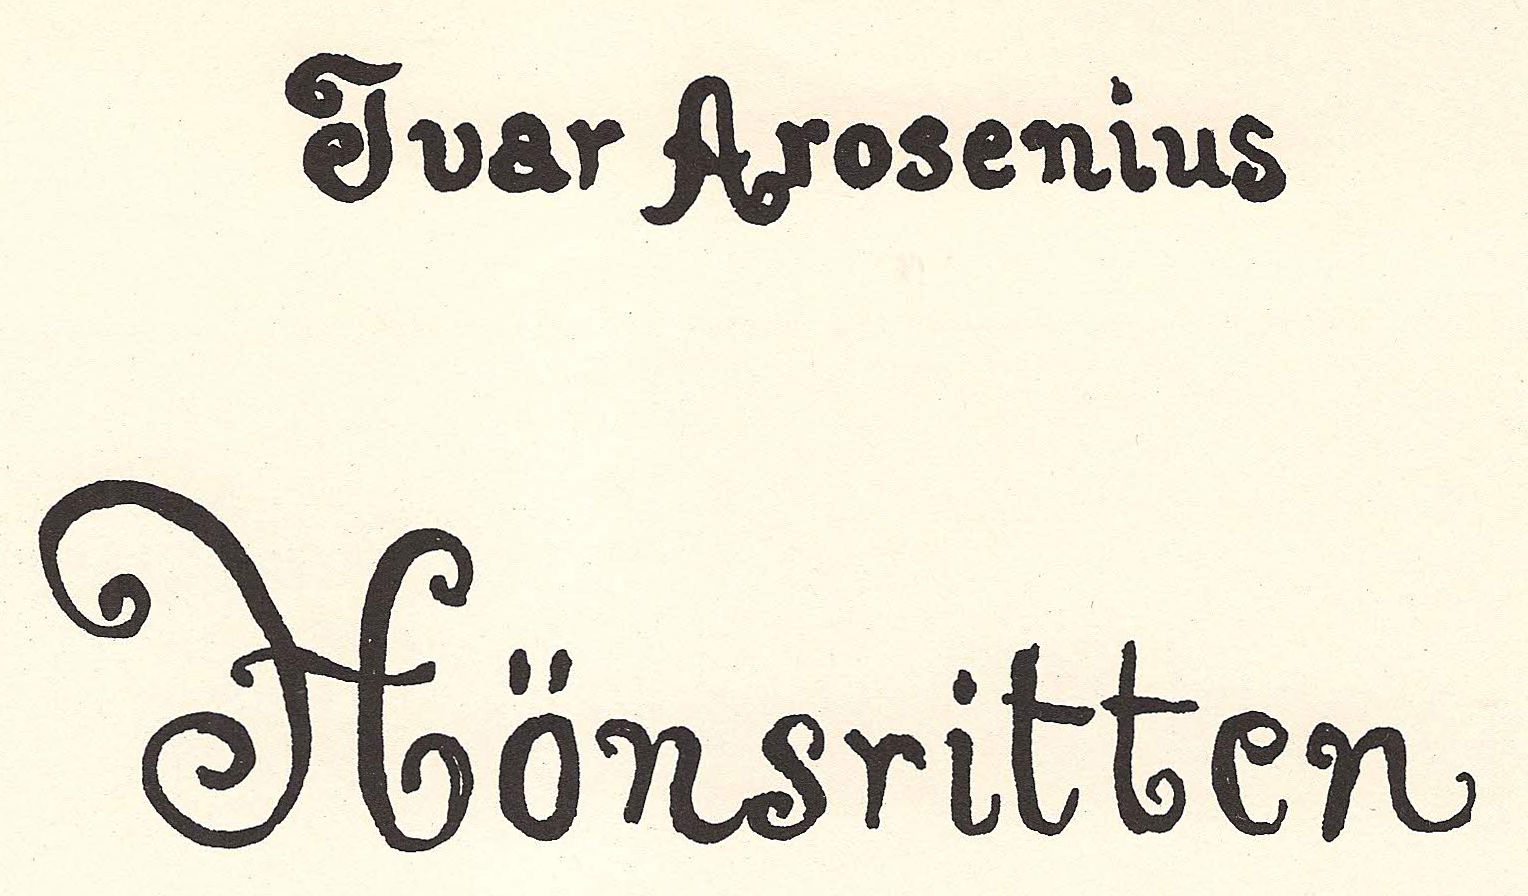 Ivar Arosenius
Hönsritten